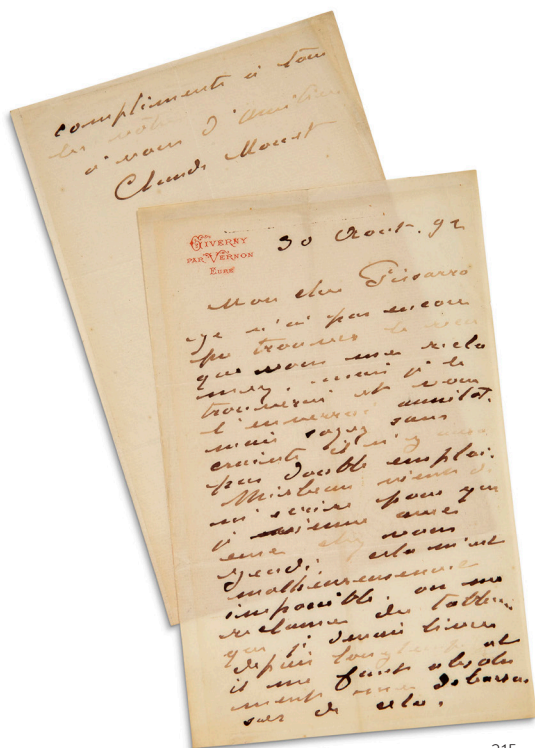 compliments à tous
les vôtres
à vous d'amitié
Claude Monet
GIVERNY
PAR VERNON
EURE
30 Août. 92
Mon cher Pissarro
je n'ai pas encore
pu trouver le reçu
que vous me récla
mez. mais je le
trouverai et vous
l'enverrai aussitôt.
mais soyez sans
crainte il n'y aura
pas double emploi.
Mirbeau vient de
m'écrire pour que
j'vienne avec
eux chez vous
jeudi. cela m'est
malheureusement
impossible. on me
réclame des tableaux
que je devais livrer
depuis longtemps et
il me faut absolu
ment me débarras
ser de cela.
215